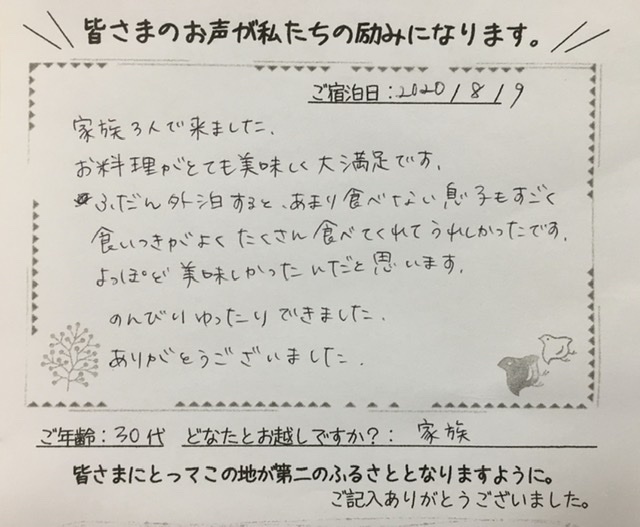 皆さまのお声が私たちの励みになります。
ご宿泊日：2020/8/9
家族3人で来ました.
お料理がとても美味しく大満足です.
ふだん外泊すると、あまり食べない息子もすごく
食いつきがよくたくさん食べてくれてうれしかったです.
よっぽど美味しかったんだと思います.
のんびりゆったりできました.
ありがとうございました.
ご年齢：30代 どなたとお越しですか？：家族
皆さまにとってこの地が第二のふるさととなりますように。
ご記入ありがとうございました。